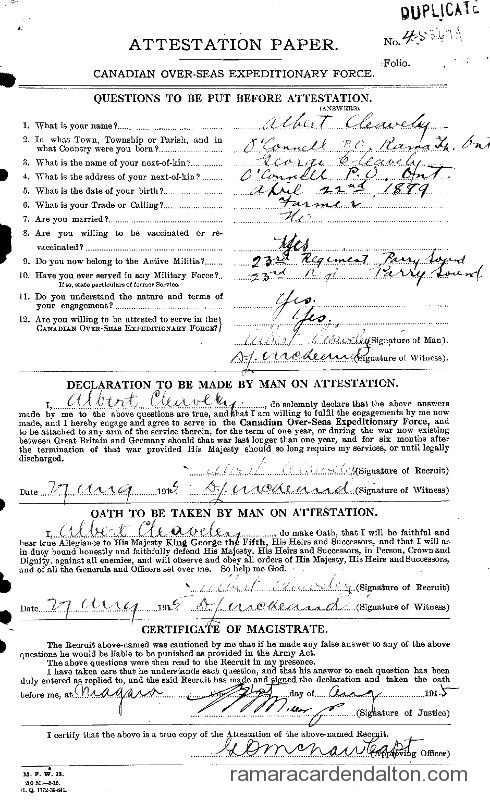 DUPLICATE
ATTESTATION PAPER.
No.
Folio.
CANADIAN OVER-SEAS EXPEDITIONARY FORCE.
QUESTIONS TO BE PUT BEFORE ATTESTATION.
(ANSWERS)
1. What is your name? Albert Cleavely
2. In what Town, Township or Parish, and in
what Country were you born? O'Connell P.O., Rama Tp. Ont
3. What is the name of your next-of-kin? George Cleavely
4. What is the address of your next-of-kin? O'Connell P.O. Ont.
5. What is the date of your birth? April 22nd 1879
6. What is your Trade or Calling? Farmer
7. Are you married? No
8. Are you willing to be vaccinated or re-
vaccinated? Yes
9. Do you now belong to the Active Militia? 23rd Regiment Parry Sound
10. Have you ever served in any Military Force? 23rd Rgt Parry Sound
If so, state particulars of former Service.
11. Do you understand the nature and terms of
your engagement? Yes.
12. Are you willing to be attested to serve in the
CANADIAN OVER-SEAS EXPEDITIONARY FORCE? Yes.
Albert Cleavely (Signature of Man).
(Signature of Witness).
DECLARATION TO BE MADE BY MAN ON ATTESTATION.
I, Albert Cleavely, do solemnly declare that the above answers
made by me to the above questions are true, and that I am willing to fulfil the engagements by me now
made, and I hereby engage and agree to serve in the Canadian Over-Seas Expeditionary Force, and
to be attached to any arm of the service therein, for the term of one year, or during the war now existing
between Great Britain and Germany should that war last longer than one year, and for six months after
the termination of that war provided His Majesty should so long require my services, or until legally
discharged.
Albert Cleavely (Signature of Recruit)
Date 27 Aug 1915 (Signature of Witness)
OATH TO BE TAKEN BY MAN ON ATTESTATION.
I, Albert Cleavely, do make Oath, that I will be faithful and
bear true Allegiance to His Majesty King George the Fifth, His Heirs and Successors, and that I will as
in duty bound honestly and faithfully defend His Majesty, His Heirs and Successors, in Person, Crown and
Dignity, against all enemies, and will observe and obey all orders of His Majesty, His Heirs and Successors,
and of all the Generals and Officers set over me. So help me God.
Albert Cleavely (Signature of Recruit)
Date 27 Aug 1915 (Signature of Witness)
CERTIFICATE OF MAGISTRATE.
The Recruit above-named was cautioned by me that if he made any false answer to any of the above
questions he would be liable to be punished as provided in the Army Act.
The above questions were then read to the Recruit in my presence.
I have taken care that he understands each question, and that his answer to each question has been
duly entered as replied to, and the said Recruit has made and signed the declaration and taken the oath
before me, at Niagara day of Aug 1915
(Signature of Justice)
I certify that the above is a true copy of the Attestation of the above-named Recruit.
Capt (Approving Officer)
M. F. W. 23.
ramaracardendalton.com